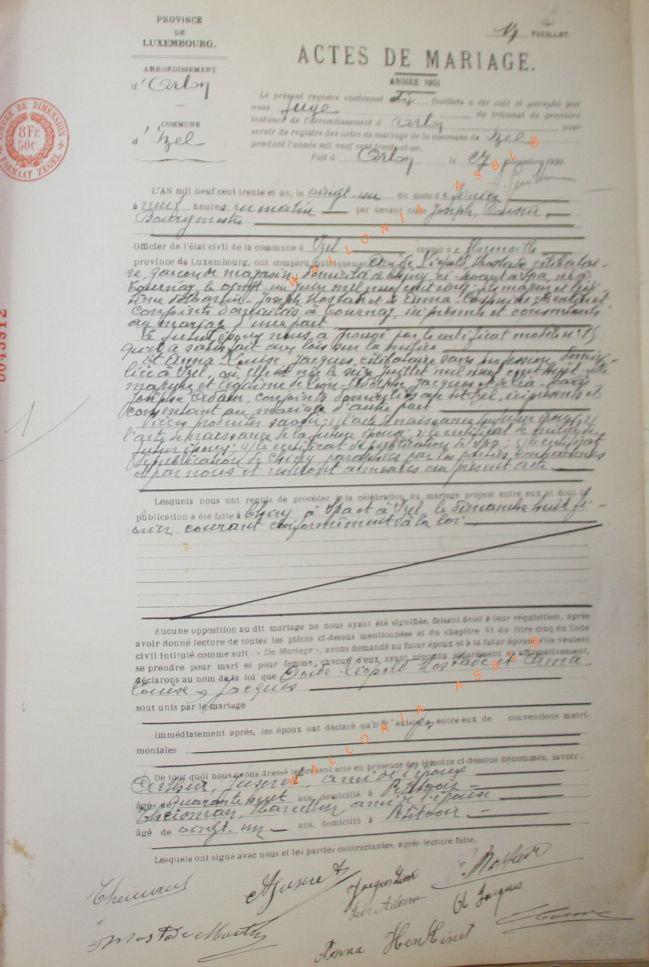 PROVINCE
DE
LUXEMBOURG.
ARRONDISSEMENT
d'Arlon
COMMUNE
d'Izel
8 Fr
50c.
14 FEUILLET.
ACTES DE MARIAGE.
ANNÉE 1931
Le présent registre contenant dix feuillets a été coté et paraphé par
nous Juge du tribunal de première
instance de l'arrondissement d'Arlon pour
servir de registre des actes de mariage de la commune de Izel
pendant l'année mil neuf cent trente et-un.
Fait à Arlon le 27 décembre 1930.
WALLONIA ASBL ©
L'AN mil neuf cent trente et un, le vingt un du mois de février
à neuf heures du matin par devant nous Joseph
Bourgmestre
Officier de l'état civil de la commune d'Izel canton de Florenville
province de Luxembourg, ont comparu Ovide Léopold Mostade célibatai-
re, garçon de magasin, domicilié à Chiny et avant à Spa, né à
Tournay, le vingt un juin mil neuf cent cinq, fils majeur et légi-
time de Martin-Joseph Mostade et de Anna
conjoints domiciliés à Tournay, ici présents et consentants
au mariage d'une part
Le futur époux nous a prouvé par le certificat modèle n° 15
qu'il a satisfait aux lois sur la milice
Et Anna Louise Jacques célibataire sans profession domici-
liée à Izel, où elle est née le six juillet mil neuf cent huit fille
majeure et légitime de Léon-Joseph Jacques et de Léa-Marie
Josèphe Adam, conjoints domiciliés au dit Izel, ici présents et
consentant au mariage d'autre part
Pièces produites savoir: 1) l'acte de naissance du futur époux; 2)
l'acte de naissance de la future épouse; 3) le certificat de milice du
futur époux; 4) le certificat de publication de Spa; 5) le certificat
de publication de Chiny paraphés par les parties comparantes
et par nous et resteront annexés au présent acte
Lesquels nous ont requis de procéder à la célébration du mariage projeté entre eux et dont la
publication a été faite à Chiny à Spa et à Izel le dimanche huit fé-
vrier courant conformément à la loi
Aucune opposition au dit mariage ne nous ayant été signifiée, faisant droit à leur réquisition, après
avoir donné lecture de toutes les pièces ci-dessus mentionnées et du chapitre VI du titre cinq du Code
civil intitulé comme suit « Du Mariage », avons demandé au futur époux et à la future épouse s'ils veulent
se prendre pour mari et pour femme; chacun d'eux ayant répondu séparément et affirmativement,
déclarons au nom de la loi que Ovide-Léopold Mostade et Anna-
Louise Jacques
sont unis par le mariage
WALLONIA ASBL ©
Immédiatement après, les époux ont déclaré qu'il entre eux de conventions matri-
moniales
De tout quoi nous avons dressé le présent acte en présence des témoins ci-dessous dénommés, savoir:
ami de l'époux
âgé de quarante huit ans, domicilié à
Marcellin ami de l'épouse
âgé de vingt-un ans, domicilié à
Lesquels ont signé avec nous et les parties contractantes, après lecture faite.
Jacques Léon
Léa Adam
A Jacques
Mostade Martin
Anna